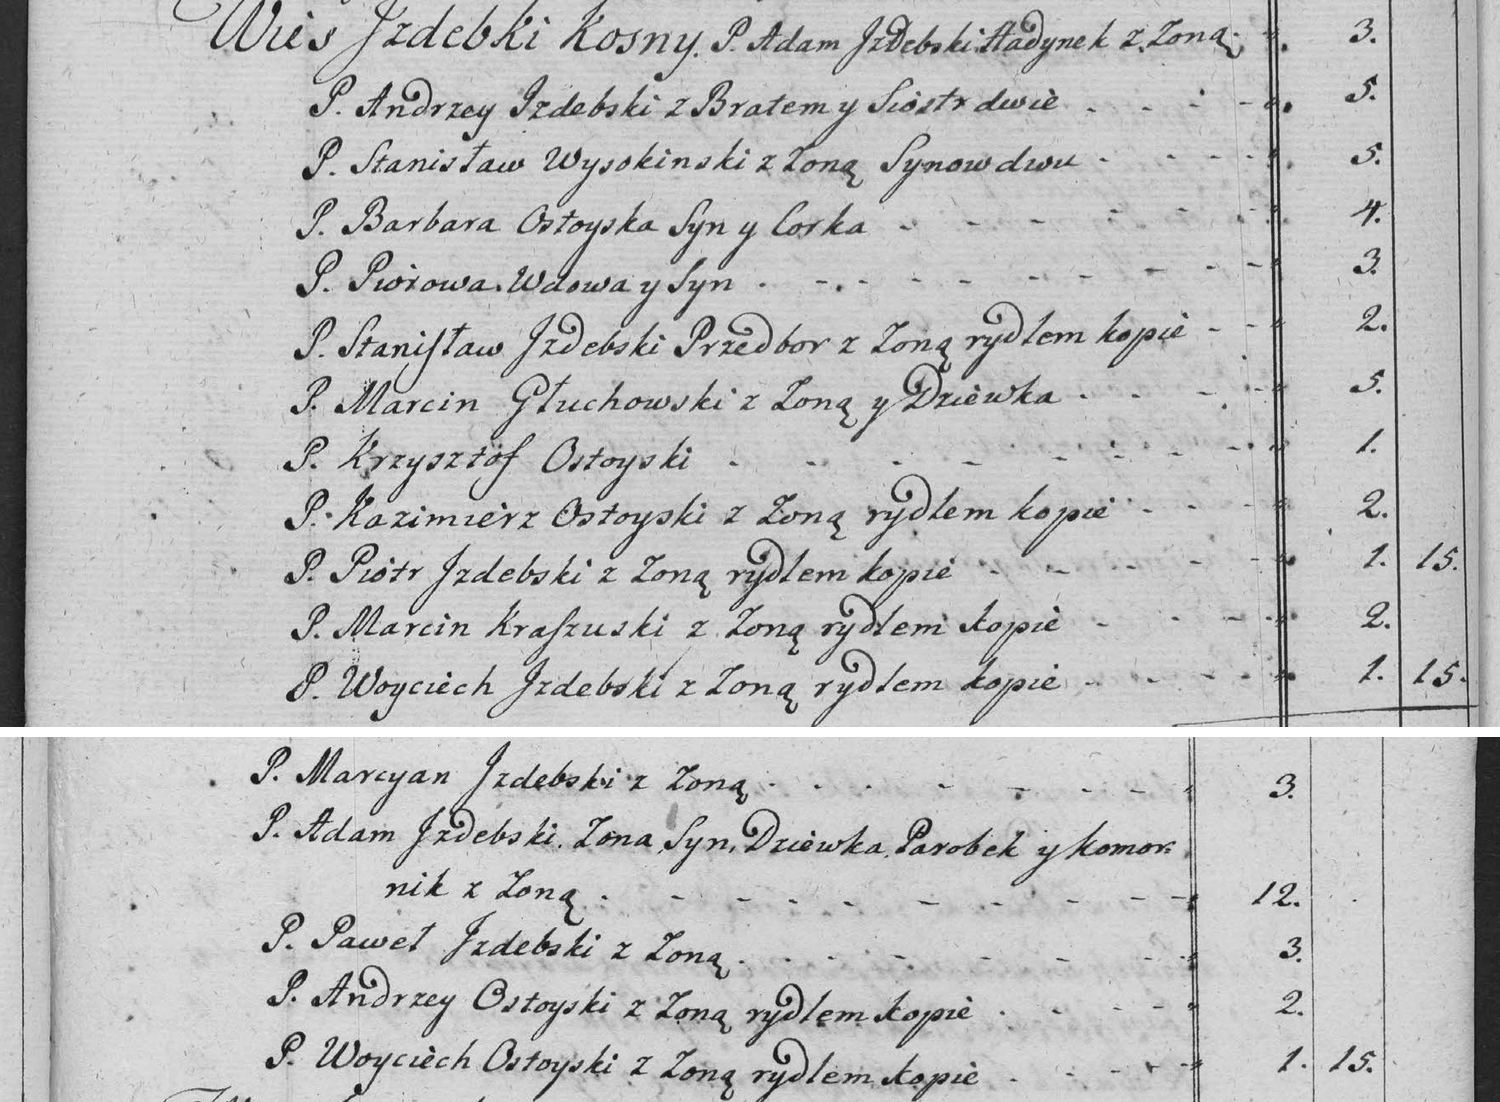 Wies Jzdebki Kosny. P. Adam Jzdebski Hadynek z Zoną. 3.
P. Andrzey Jzdebski z Bratem y Siostr dwie 5.
P. Stanisław Wysokinski z Zoną Synow dwu 5.
P. Barbara Ostoyska Syn y Corka 4.
P. Piorowa Wdowa y Syn 3.
P. Stanisław Jzdebski Przedbor z Zoną rydlem kopie 2.
P. Marcin Głuchowski z Zoną y Dziewka 5.
P. Krzysztof Ostoyski 1.
P. Kazimierz Ostoyski z Zoną rydlem kopie 2.
P. Piotr Jzdebski z Zoną rydlem kopie 1. 15.
P. Marcin Kraszuski z Zoną rydlem kopie 2.
P. Woyciech Jzdebski z Zoną rydlem kopie 1. 15.
P. Marcyan Jzdebski z Zoną 3.
P. Adam Jzdebski, Zona, Syn, Dziewka, Parobek y komor-
nik z Zoną 12.
P. Paweł Jzdebski z Zoną 3.
P. Andrzey Ostoyski z Zoną rydlem kopie 2.
P. Woyciech Ostoyski z Zoną rydlem kopie 1. 15.